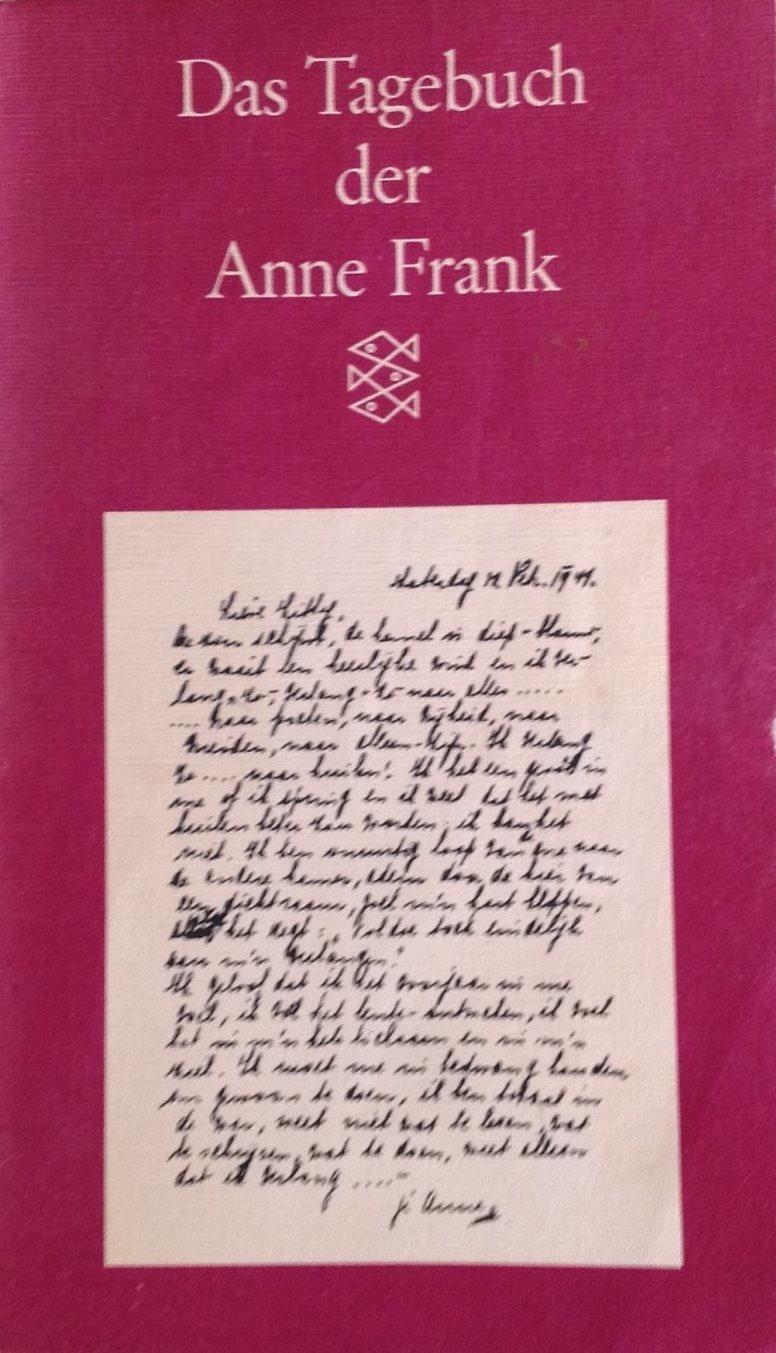 Das Tagebuch
der
Anne Frank
Zaterdag 12 Feb. 1944.
Lieve Kitty,
De zon schijnt, de hemel is diep-blauw,
er waait een heerlijke wind en ik ver-
lang-zo-, verlang-zo naar alles .....
.... Naar praten, naar vrijheid, naar
vrienden, naar alleen-zijn. Ik verlang
zo .... naar huilen! Ik heb een gevoel in
me of ik spring en ik weet dat het met
huilen beter zou worden; ik kan het
niet. Ik ben onrustig, loop van ene naar
de andere kamer, adem door de kier van
een dichtraam, voel m'n hart kloppen,
het zegt: „Voldoe toch eindelijk
aan m'n verlangen."
Ik geloof dat ik het voorjaar in me
voel, ik voel het lente-ontwaken, ik voel
het in m'n hele lichaam en in m'n
ziel. Ik moet me in bedwang houden,
om gewoon te doen, ik ben totaal in
de war, weet niet wat te lezen, wat
te schrijven, wat te doen, weet alleen
dat ik verlang .....
je Anne